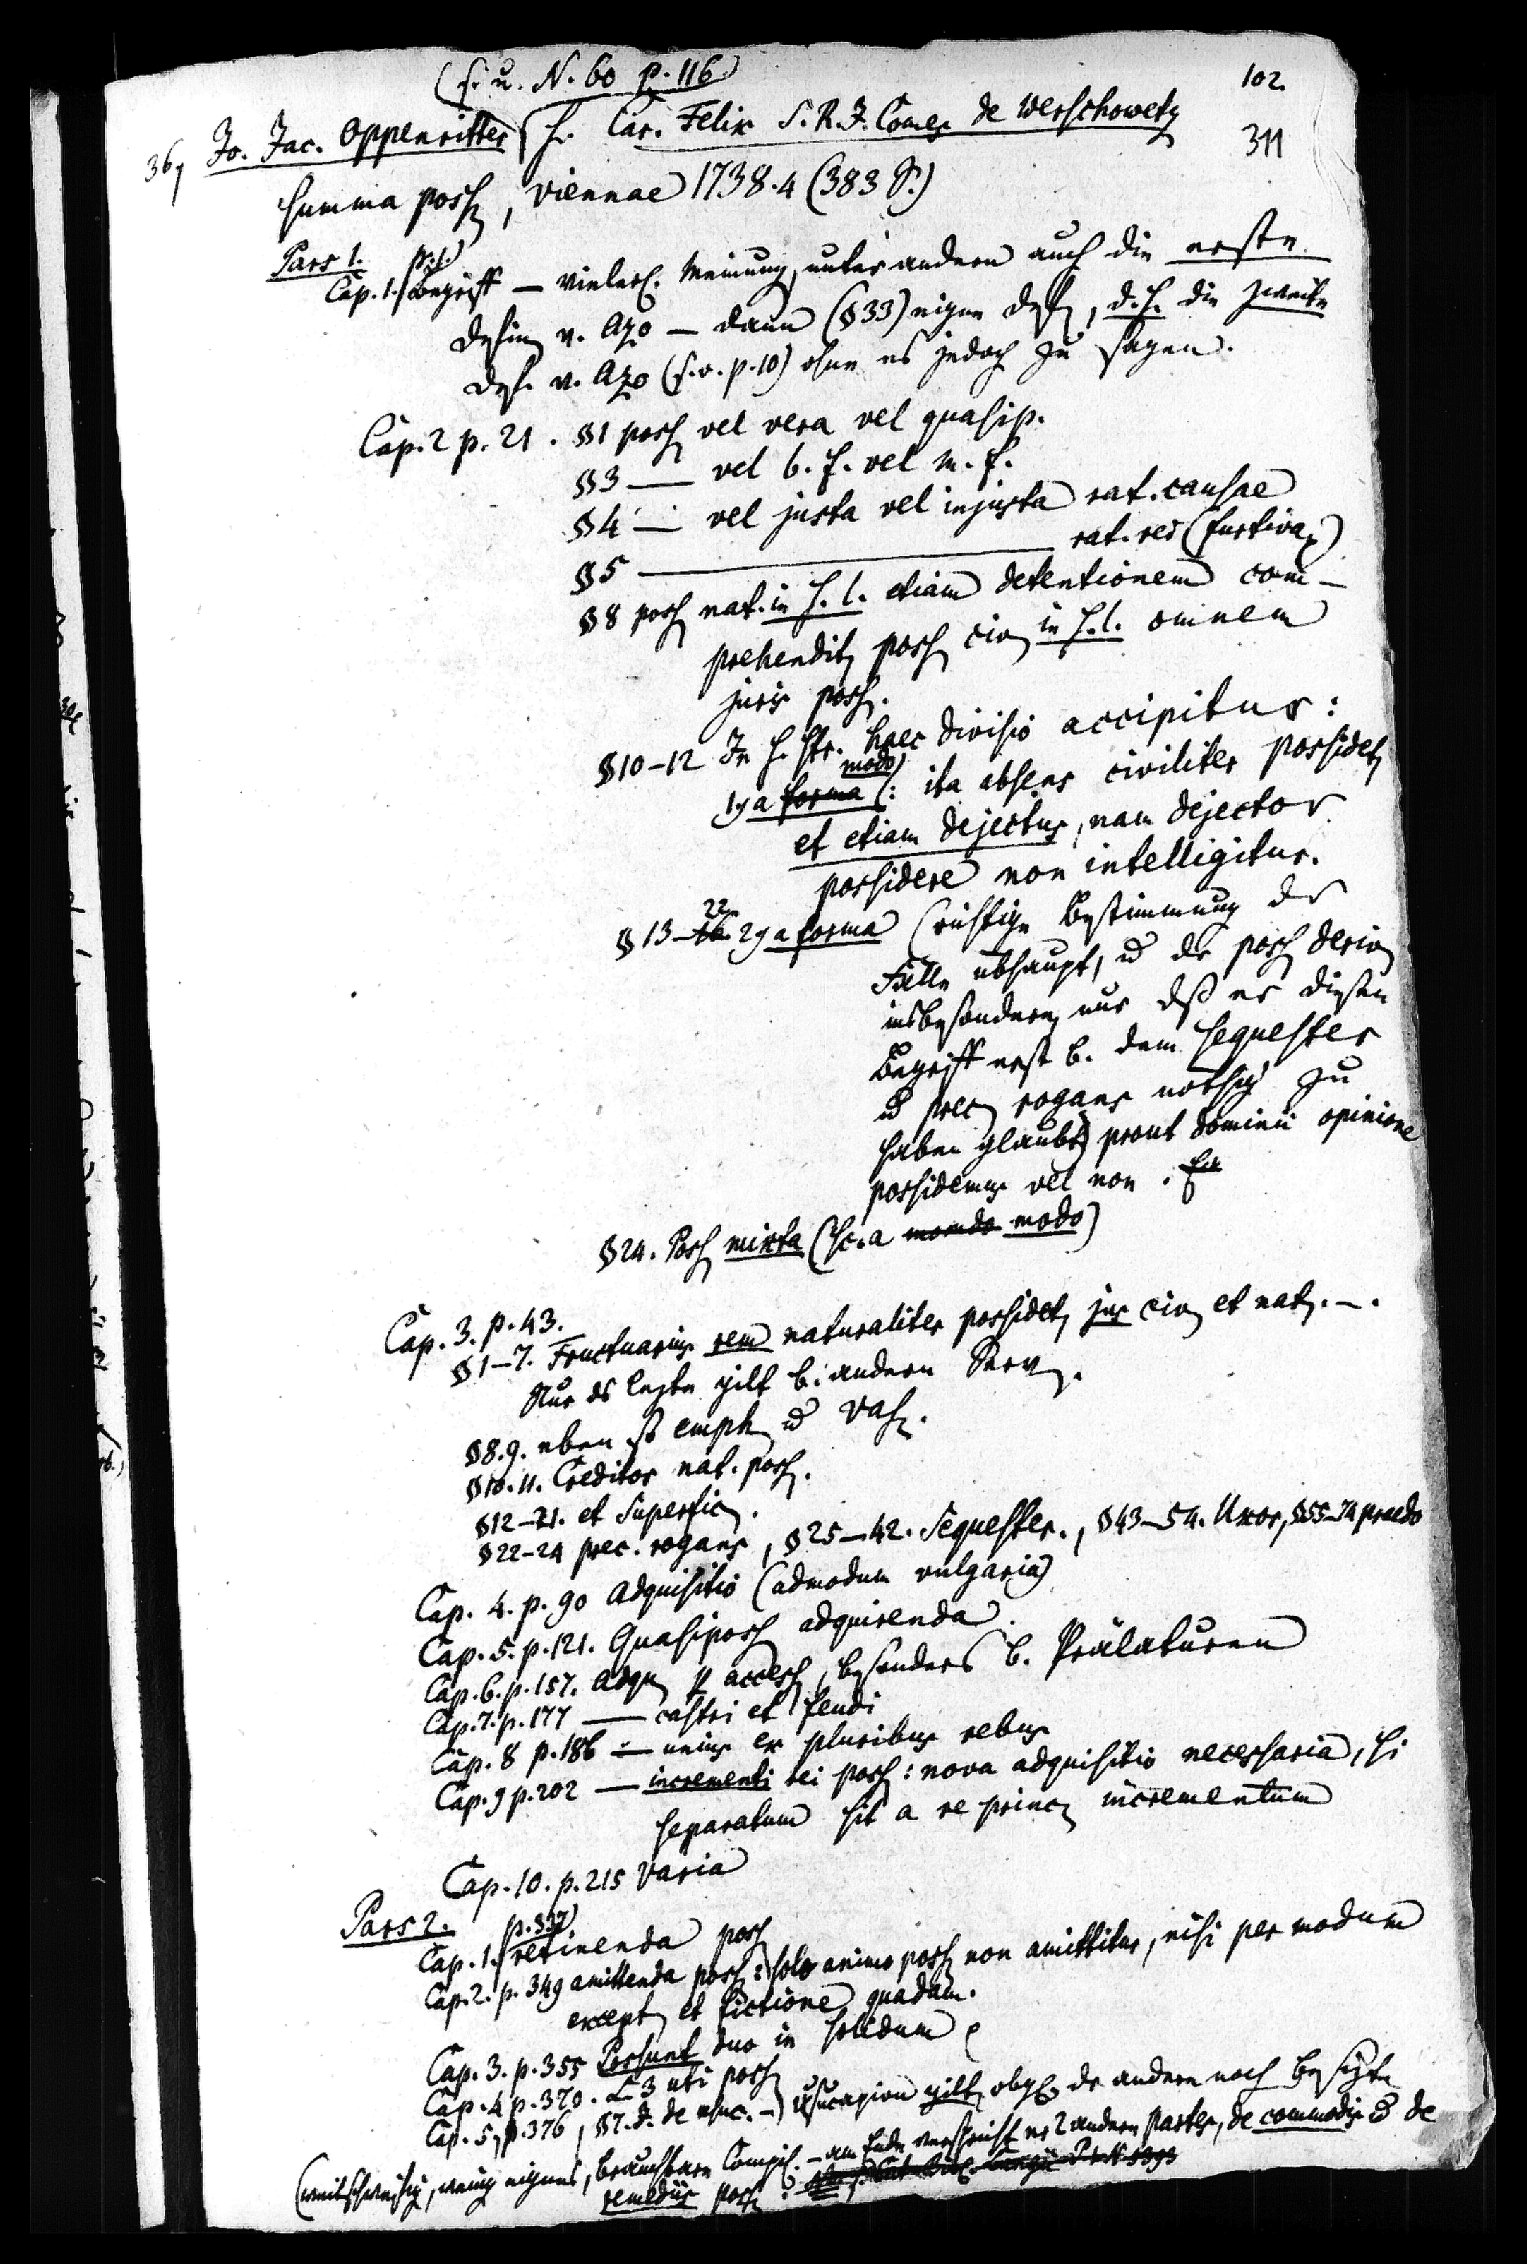 (s. u. N. 60 p. 116)
102.
36, Jo. Jac. Oppenritter s. Car. Felix S. R. I. Comes de Werschowetz
311
Summa poss, Viennae 1738. 4 (383 S.)
Pars 1.
Cap. 1. p. 1. Begriff — vielerl. Meinung, unter andern auch die erste
Defin v. Azo — dann (§33) eigne Def, d. h. die zweite
Def. v. Azo (s. o. p. 10) ohne es jedoch zu sagen.
Cap. 2 p. 21. §1 poss vel vera vel quasip.
§3 — vel b. f. vel m. f.
§4 — vel justa vel injusta rat. causae
§5 — rat. rei (furtiva)
§8 poss nat. in s. l. etiam detentionem com-
prehendit, poss civ in s. l. omnem
juris poss.
§10–12 In s. str. haec divisio accipitur:
modo
1, a forma: ita absens civiliter possidet,
et etiam dejectus, nam dejector
possidere non intelligitur.
22
§13–16. 2, a forma (richtige Bestimmung der
Fälle übhaupt, u der poss deriv
insbesondere, nur dß er diesen
Begriff erst b. dem sequester
u prec rogans nöthig zu
haben glaubt) prout dominii opinione
possidemus vel non.
§24. Poss mixta (sc. a modo)
Cap. 3. p. 43.
§1–7. Fructuarius rem naturaliter possidet, jus civ et nat. —.
Nur ds lezte gilt b. andern Serv.
§8. 9. eben so emph u Vas.
§10. 11. Creditor nat. poss.
§12–21. et Superfic.
§22–24 prec. rogans, §25–42. Sequester., §43–54. Uxor, §55–74 praedo
Cap. 4. p. 90 Adquisitio (admodum vulgaria)
Cap. 5. p. 121. Quasiposs adquirenda.
Cap. 6. p. 157. Adqu p access, besonders b. Prälaturen
Cap. 7. p. 177 — castri et feudi
Cap. 8 p. 186 — unius ex pluribus rebus
Cap. 9 p. 202 — incrementi rei poss: nova adquisitio necessaria, si
separatum sit a re princ incrementum
Cap. 10. p. 215 Varia
Pars 2.
Cap. 1. p. 337 retinenda poss
Cap. 2. p. 349 amittenda poss: solo animo poss non amittitur, nisi per modum
except et fictione quadam.
Cap. 3. p. 355 Possunt duo in solidum
Cap. 4 p. 370. L 3 uti poss
Cap. 5, p. 376, §7. d. de usuc. —) Usucapion gilt, obgl. der andere noch besizt
(weitschweifig, wenig eignes, brauchbare Compil. — am Ende verspricht er 2 andere partes, de commodis u de
remediis poss.